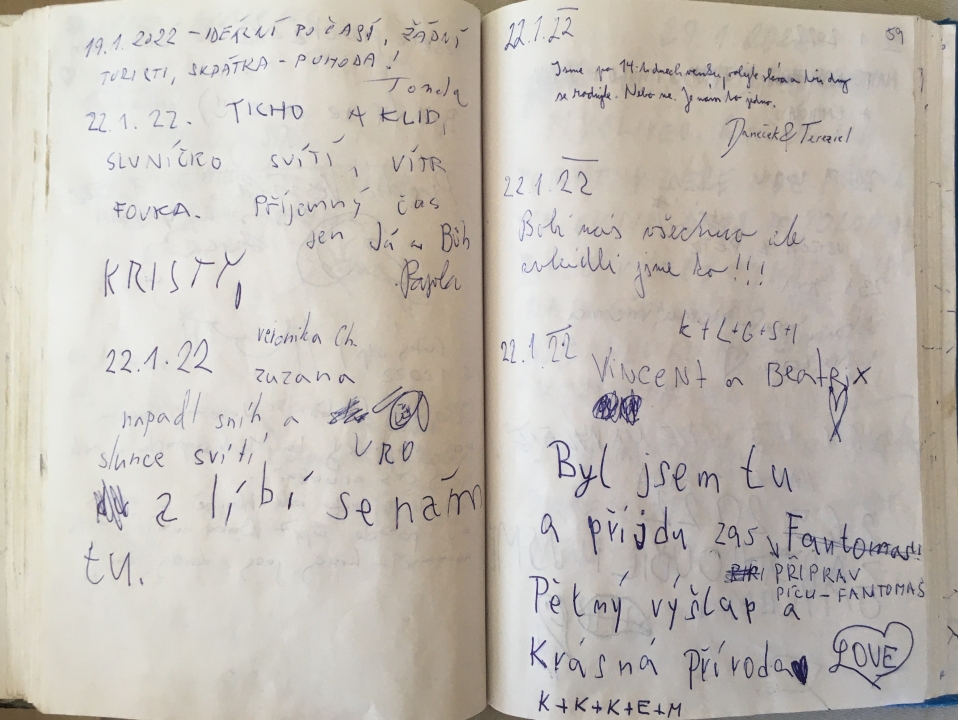 19.1.2022 - IDEÁLNÍ POČASÍ, ŽÁDNÍ
TURISTI, SKRÁTKA - POHODA!
Tonda
22.1.22. TICHO A KLID,
SLUNÍČKO SVÍTÍ, VÍTR
FOUKÁ. Příjemný čas
jen Já a Bůh
KRISTY,
22.1.22 veronika Ch.
zuzana
napadl sníh a
slunce svítí
z líbí se nám
tu.
59
22.1.22
Jsme po 14 tidnech venku,
se
Nebo ne. Je nám to jedno.
Daneček & Tereziel
22.1.22
Bolí nás všechno ale
zvládli jsme to!!!
K+L+G+S+I
22.1.22
VINCENT a BEATRIX
Byl jsem tu
a příjdu zas Fantomas!!
PŘIPRAV
PÍCU-FANTOMAS
Pětný výšlap a
Krásná příroda LOVE
K+K+K+E+M